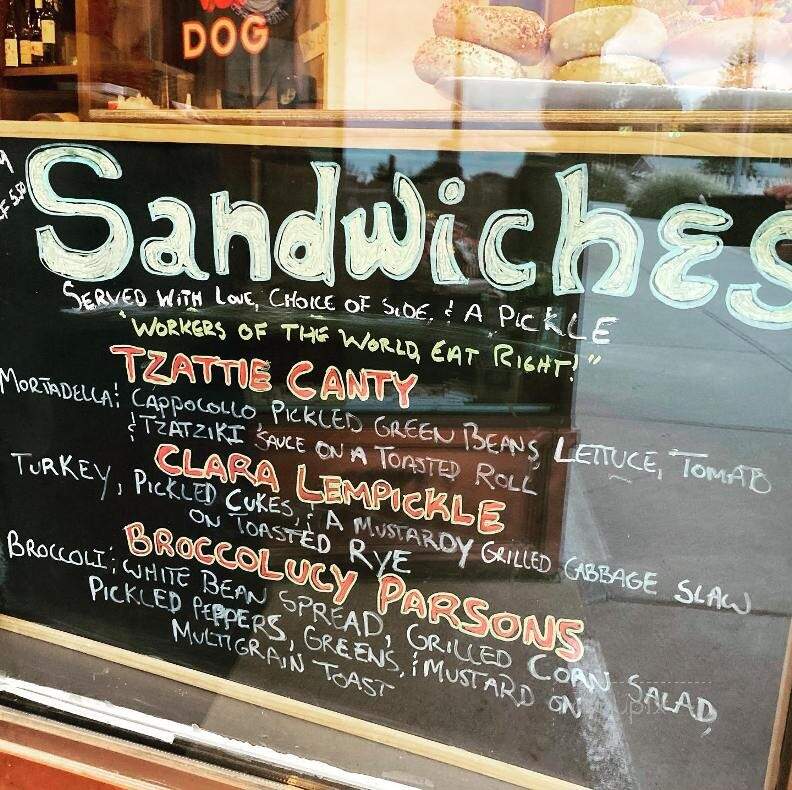 DOG
Sandwiches
SERVED WITH LOVE, CHOICE OF SIDE, & A PICKLE
"WORKERS OF THE WORLD, EAT RIGHT!"
TZATTIE CANTY
MORTADELLA & CAPPOCOLLO, PICKLED GREEN BEANS, LETTUCE, TOMATO
& TZATZIKI SAUCE ON A TOASTED ROLL
CLARA LEMPICKLE
TURKEY, PICKLED CUKES, & A MUSTARDY GRILLED CABBAGE SLAW
ON TOASTED RYE
BROCCOLUCY PARSONS
BROCCOLI & WHITE BEAN SPREAD, GRILLED CORN SALAD,
PICKLED PEPPERS, GREENS, & MUSTARD ON
MULTIGRAIN TOAST